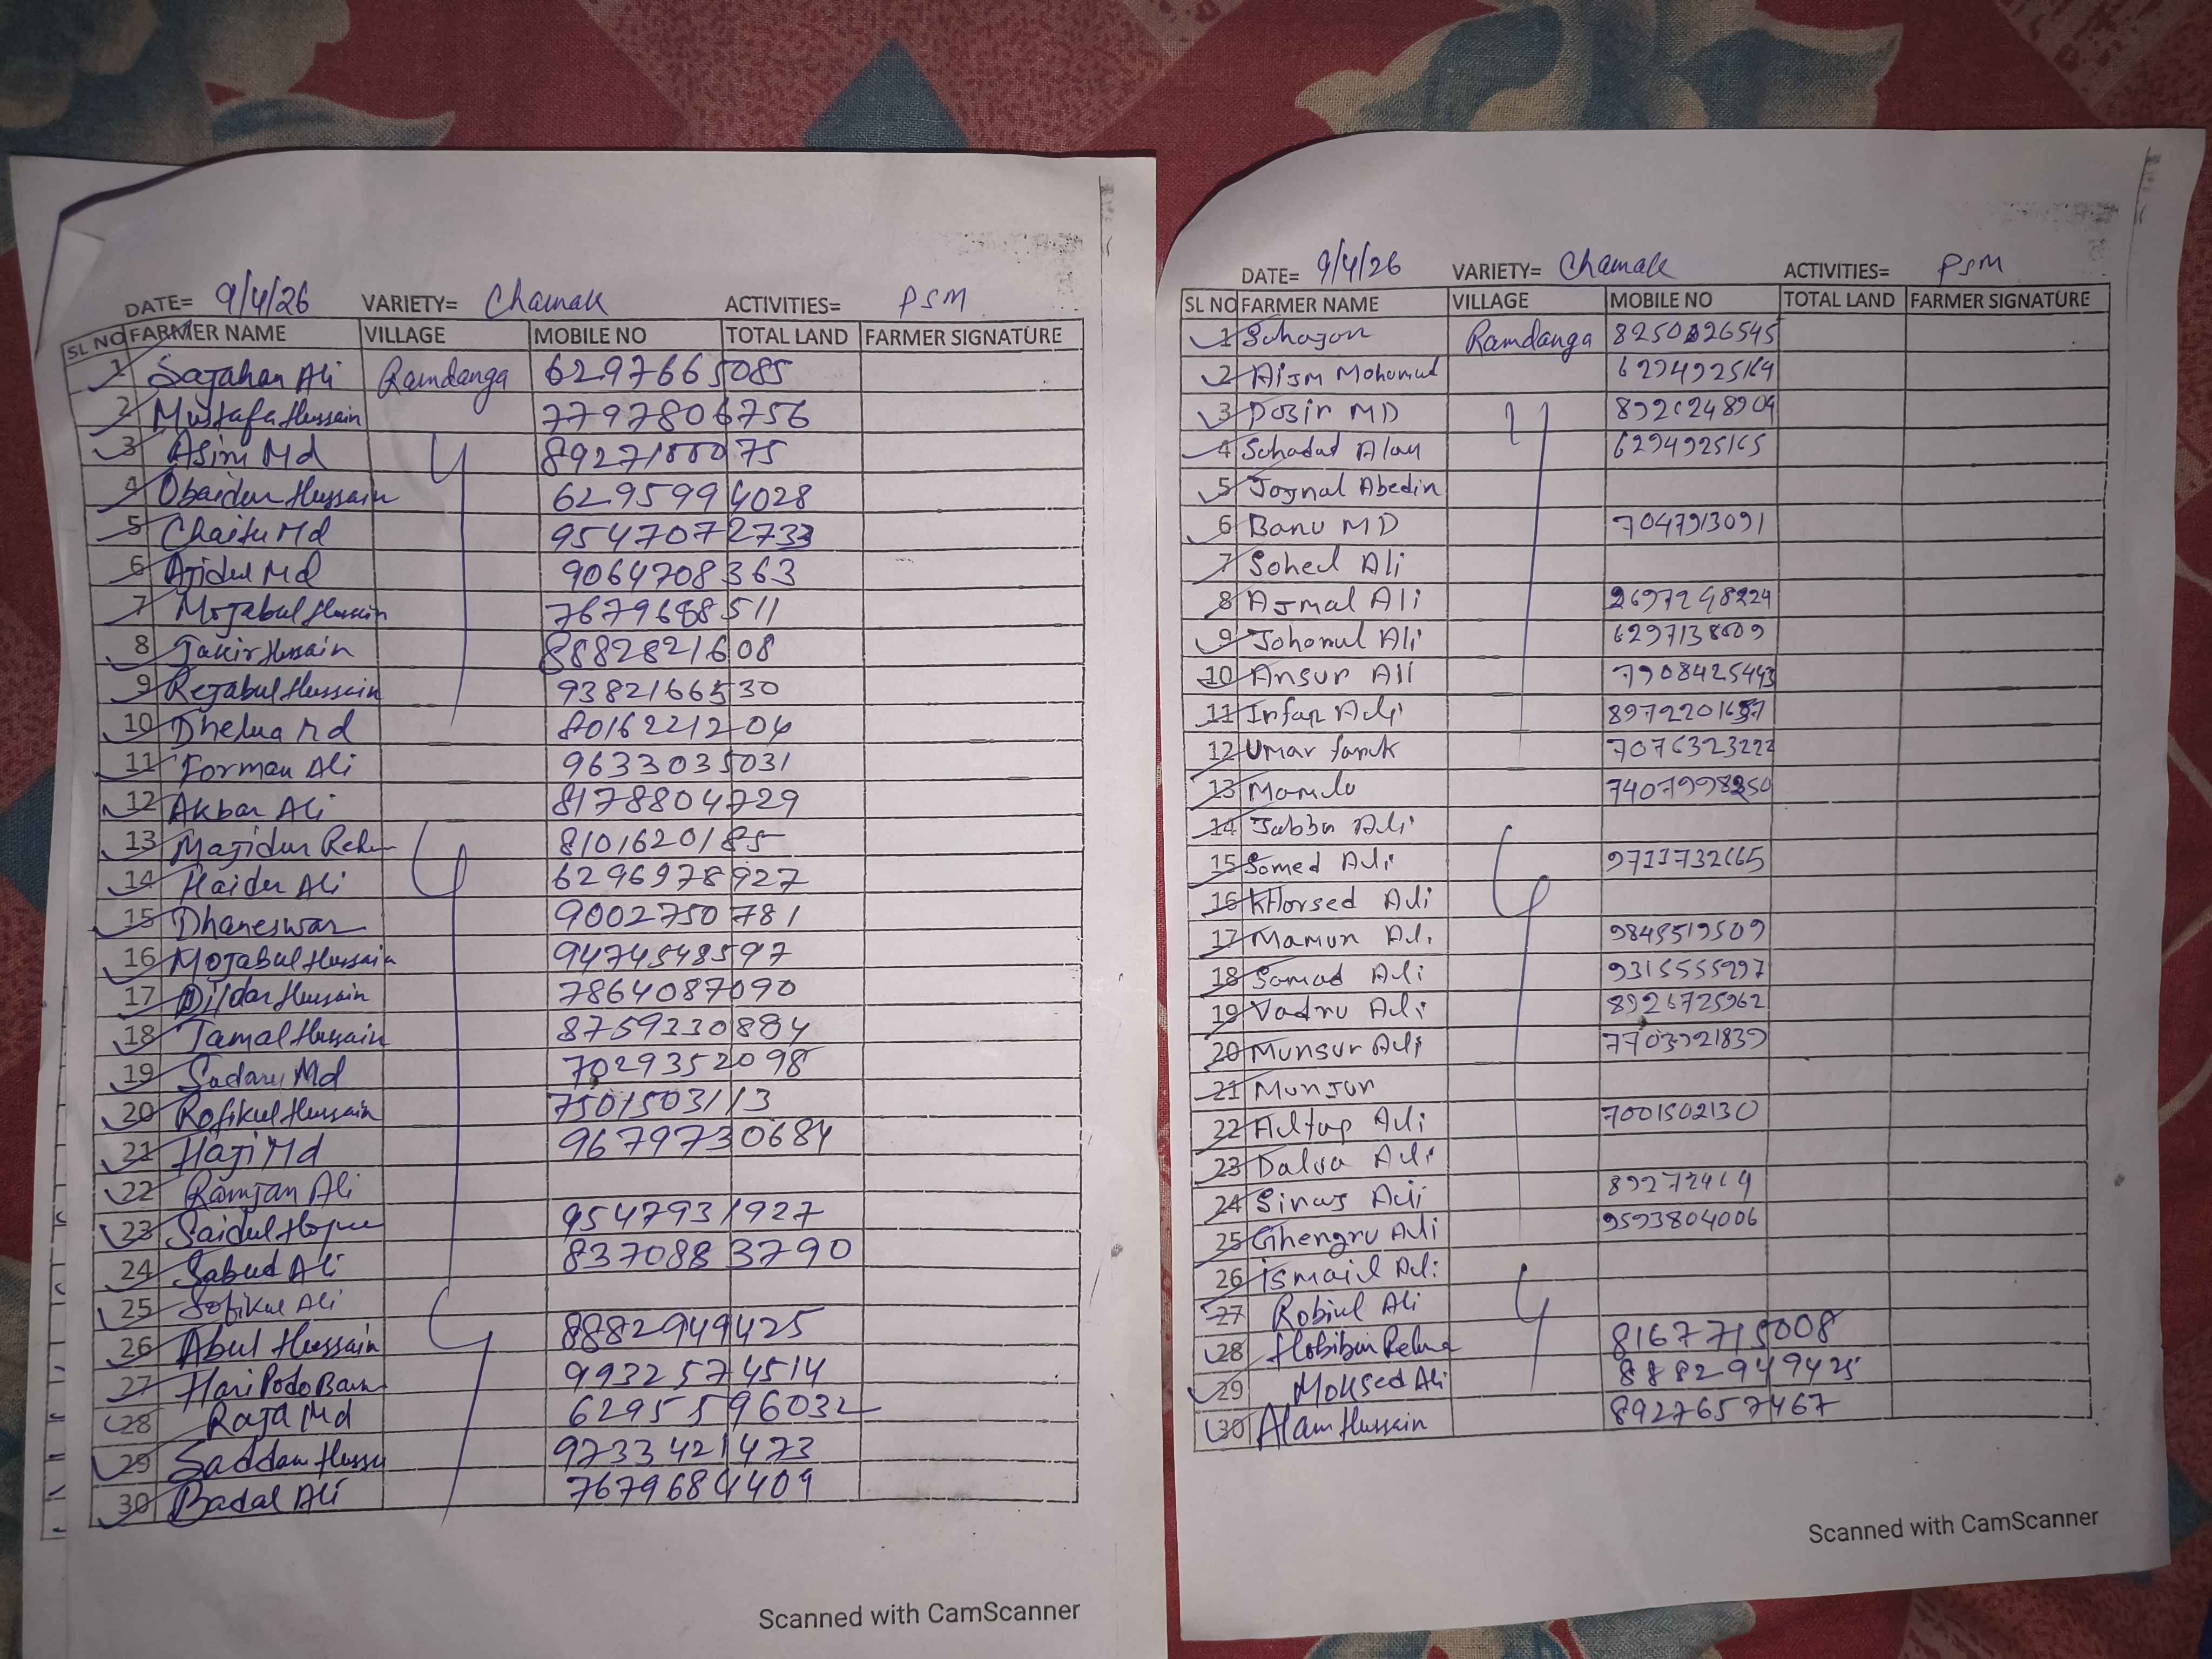 DATE= 9/4/26 VARIETY= Chamak ACTIVITIES= PSM
SL NO FARMER NAME VILLAGE MOBILE NO TOTAL LAND FARMER SIGNATURE
1 Sajahan Ali Ramdanga 6297665085
2 Mustafa Hussain 7797806756
3 Asim Md 8927188075
4 Obaidur Hussain 6295994028
5 Chaitu Md 9547072733
6 Ajidul Md 9064708363
7 Mojabul Hussain 7679688511
8 Jakir Hussain 8882821608
9 Rejabul Hussain 9382166530
10 Dhelua Md 8016221204
11 Forman Ali 9633035031
12 Akbar Ali 8178804729
13 Majidur Rehm 8101620185
14 Haider Ali 6296978927
15 Dhaneswar 9002750781
16 Mojabul Hussain 9474548597
17 Dildar Hussain 7864087090
18 Jamal Hussain 8759330884
19 Sadaru Md 7029352098
20 Rofikul Hussain 7501503113
21 Haji Md 9679730684
22 Ramjan Ali
23 Saidul 9547931927
24 Sabud Ali 8370883790
25 Sofikul Ali
26 Abul Hussain 8882949425
27 Hari Podo Barm 9932574514
28 Raja Md 6295596032
29 Saddam Hussa 9733421473
30 Badal Ali 7679684409
Scanned with CamScanner
DATE= 9/4/26 VARIETY= Chamak ACTIVITIES= PSM
SL NO FARMER NAME VILLAGE MOBILE NO TOTAL LAND FARMER SIGNATURE
1 Sahajon Ramdanga 8250826545
2 Aijm Mohomud 6294925164
3 Dozir MD 8926248904
4 Sohadat Alam 6294925165
5 Joynal Abedin
6 Banu MD 7047913091
7 Sohel Ali
8 Ajmal Ali
9 Johonul Ali 6297138609
10 Ansur Ali 7908425443
11 Irfan Ali
12 Umar faruk 7076323222
13 Mamlu
14 Jabbu Ali
15 Somed Ali 9733732665
16 kHorsed Ali
17 Mamun Ali
18 Samad Ali 9315555997
19 Vadru Ali 8926725962
20 Munsur Ali
21 Munjur
22 Altap Ali 7001502130
23 Dalva Ali
24 Siraj Ali
25 Ghengru Ali 9593804006
26 ismail Ali
27 Robiul Ali
28 Hobibur Rehma 8167715008
29 Moksed Ali 8882949425
30 Alam Hussain 8927657467
Scanned with CamScanner